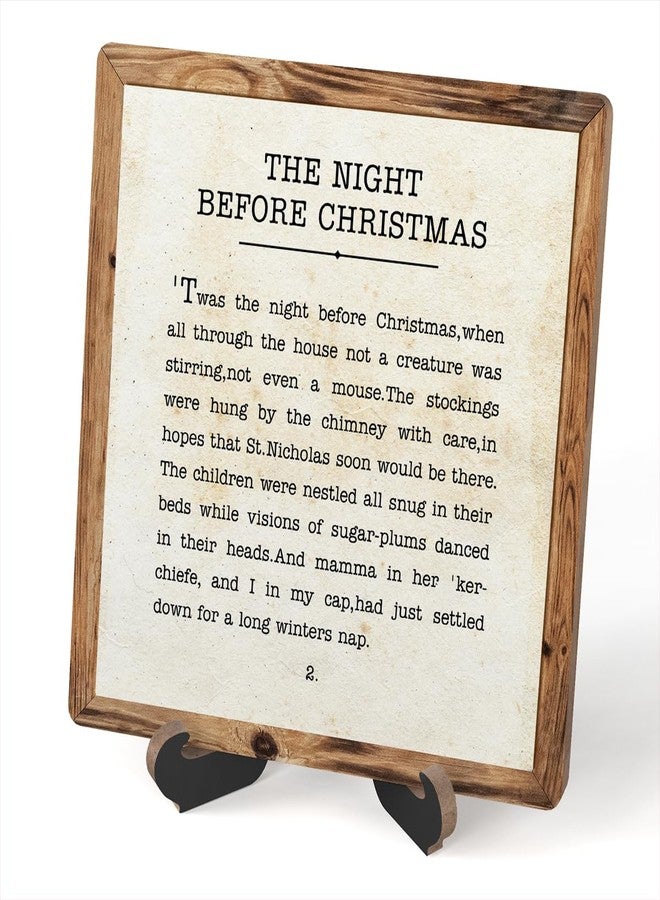 THE NIGHT
BEFORE CHRISTMAS
'Twas the night before Christmas,when
all through the house not a creature was
stirring,not even a mouse.The stockings
were hung by the chimney with care,in
hopes that St.Nicholas soon would be there.
The children were nestled all snug in their
beds while visions of sugar-plums danced
in their heads.And mamma in her 'ker-
chiefe, and I in my cap,had just settled
down for a long winters nap.
2.